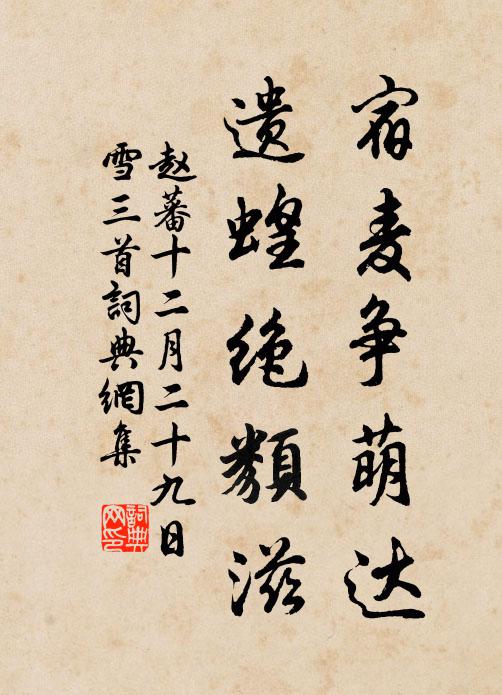 宿麦争萌达
遗蝗绝類滋
赵蕃十二月二十九日
雪三首詞典網集
詞典
网印